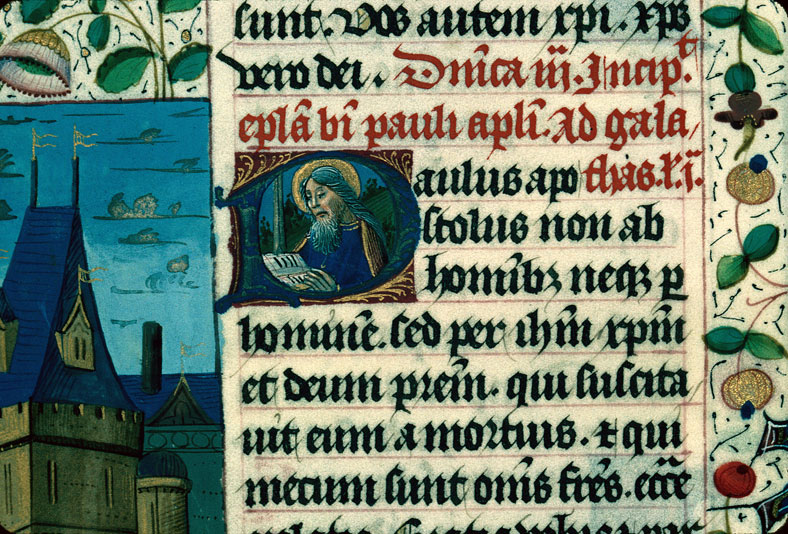 sunt. Vos autem xpi. xps
vero dei. Dn̄ica iij. Incip.t
eplā bī pauli aplī. Ad gala
Paulus apo thas. k. ī.
stolus non ab
homībꝫ neqꝫ ꝑ
hominē. sed per ihm̄ xpm̄
et deum prēm. qui suscita
uit eum a mortuis. ⁊ qui
mecum sunt om̄s frēs. ecc̄e